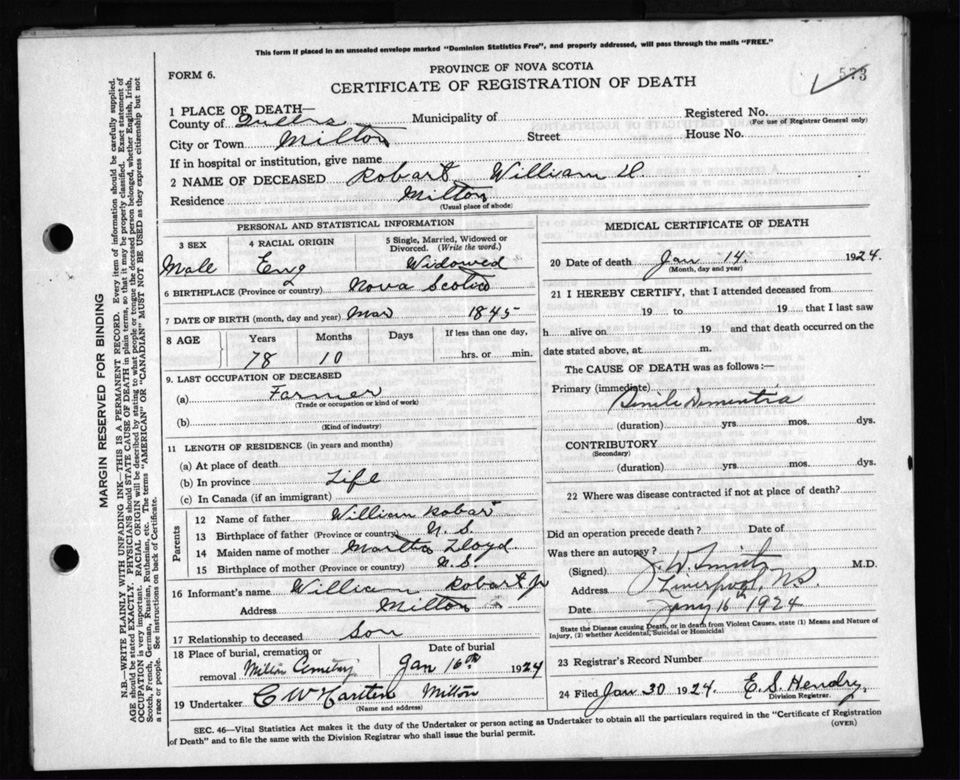 This form if placed in an unsealed envelope marked "Dominion Statistics Free", and properly addressed, will pass through the mails "FREE."
PROVINCE OF NOVA SCOTIA
FORM 6.
CERTIFICATE OF REGISTRATION OF DEATH
573
1 PLACE OF DEATH—
County of Queens Municipality of Registered No.
(For use of Registrar General only)
City or Town Milton Street House No.
If in hospital or institution, give name
2 NAME OF DECEASED Robart William H.
Residence Milton
(Usual place of abode)
PERSONAL AND STATISTICAL INFORMATION
3 SEX 4 RACIAL ORIGIN 5 Single, Married, Widowed or Divorced. (Write the word.)
Male Eng Widowed
6 BIRTHPLACE (Province or country) Nova Scotia
7 DATE OF BIRTH (month, day and year) Mar 1845
8 AGE Years Months Days If less than one day,
78 10 hrs. or min.
9. LAST OCCUPATION OF DECEASED
(a) Farmer
(Trade or occupation or kind of work)
(b)
(Kind of industry)
11 LENGTH OF RESIDENCE (in years and months)
(a) At place of death
(b) In province Life
(c) In Canada (if an immigrant)
Parents
12 Name of father William Robart
13 Birthplace of father (Province or country) N. S.
14 Maiden name of mother Martha Lloyd
15 Birthplace of mother (Province or country) N.S.
16 Informant's name William Robart Jr
Address Milton
17 Relationship to deceased Son
18 Place of burial, cremation or removal Milton Cemetery Date of burial Jan 16th 1924
19 Undertaker C W Harten Milton
(Name and address)
MEDICAL CERTIFICATE OF DEATH
20 Date of death Jan 14. 1924.
(Month, day and year)
21 I HEREBY CERTIFY, that I attended deceased from
19 to 19 that I last saw
h alive on 19 and that death occurred on the
date stated above, at m.
The CAUSE OF DEATH was as follows:—
Primary (immediate) Senile Dementia
(duration) yrs. mos. dys.
CONTRIBUTORY
(Secondary)
(duration) yrs. mos. dys.
22 Where was disease contracted if not at place of death?
Did an operation precede death? Date of
Was there an autopsy?
(Signed) J. W. Smith M.D.
Address Liverpool NS.
Date Jany 16th 1924
State the Disease causing Death, or in death from Violent Causes, state (1) Means and Nature of Injury, (2) whether Accidental, Suicidal or Homicidal
23 Registrar's Record Number
24 Filed Jan 30 1924. E. S. Hendry,
Division Registrar.
SEC. 46—Vital Statistics Act makes it the duty of the Undertaker or person acting as Undertaker to obtain all the particulars required in the "Certificate of Registration
of Death" and to file the same with the Division Registrar who shall issue the burial permit.
(OVER)
MARGIN RESERVED FOR BINDING
N.B.—WRITE PLAINLY WITH UNFADING INK—THIS IS A PERMANENT RECORD. Every item of information should be carefully supplied.
AGE should be stated EXACTLY. PHYSICIANS should STATE CAUSE OF DEATH in plain terms, so that it may be properly classified. Exact statement of
OCCUPATION is very important. RACIAL ORIGIN will be described by stating to what people or tongue the deceased person belonged, whether English, Irish,
Scotch, French, German, Russian, Ruthenian, etc. The terms "AMERICAN" OR "CANADIAN" MUST NOT BE USED as they express citizenship but not
a race or people. See instructions on back of Certificate.